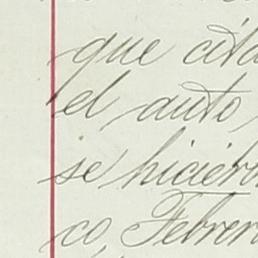 que cita
el auto
se hiciéro
co, Febrer